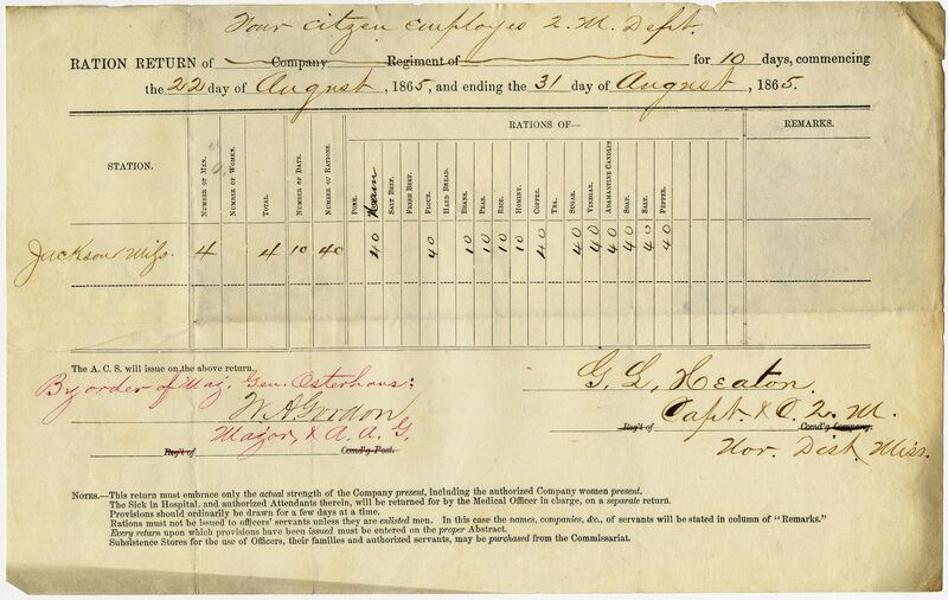 Four citzen employes Q. M. Dept.
RATION RETURN of Company Regiment of for 10 days, commencing
the 22 day of August, 1865, and ending the 31 day of August, 1865.
STATION.
NUMBER OF MEN.
NUMBER OF WOMEN.
TOTAL.
NUMBER OF DAYS.
NUMBER OF RATIONS.
RATIONS OF—
PORK.
Ham
SALT BEEF.
FRESH BEEF.
FLOUR.
HARD BREAD.
BEANS.
PEAS.
RICE.
HOMINY.
COFFEE.
TEA.
SUGAR.
VINEGAR.
ADAMANTINE CANDLES
SOAP.
SALT.
PEPPER.
REMARKS.
Jackson Miss. 4 4 10 40 40 40 10 10 10 10 40 40 40 40 40 40 40
The A. C. S. will issue on the above return.
By order of Maj. Gen. Osterhaus:
W A Gordon
Major, & A. A. G.
Reg't of Comd'g Post.
G. L. Heaton
Capt. & C. Q. M.
Reg't of Comd'g Company.
Nor. Dist. Miss.
NOTES.—This return must embrace only the actual strength of the Company present, including the authorized Company women present.
The Sick in Hospital, and authorized Attendants therein, will be returned for by the Medical Officer in charge, on a separate return.
Provisions should ordinarily be drawn for a few days at a time.
Rations must not be issued to officers' servants unless they are enlisted men. In this case the names, companies, &c., of servants will be stated in column of "Remarks."
Every return upon which provisions have been issued must be entered on the proper Abstract.
Subsistence Stores for the use of Officers, their families and authorized servants, may be purchased from the Commissariat.